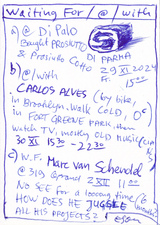 Waiting For / @ / with
a) @ Di Palo
Bought PROSIUTTO
DI PARMA
& Prosiuto Cotto 29 XI 2024
Fr. 15°°
b) @/with
CARLOS ALVES (by bike,
in Brooklyn. Walk COLD, 0°C)
in FORT GREENE PARK, then
watch TV: mostly OLD MUSIC
30 XI 15³⁰ - 22³⁰
c) W.F. Marc van Schendel
@ 319 Grand 2 XII 11°°
NO SEE for a loooong time (6
HOW DOES HE JUGGLE
ALL HIS PROJECTS?